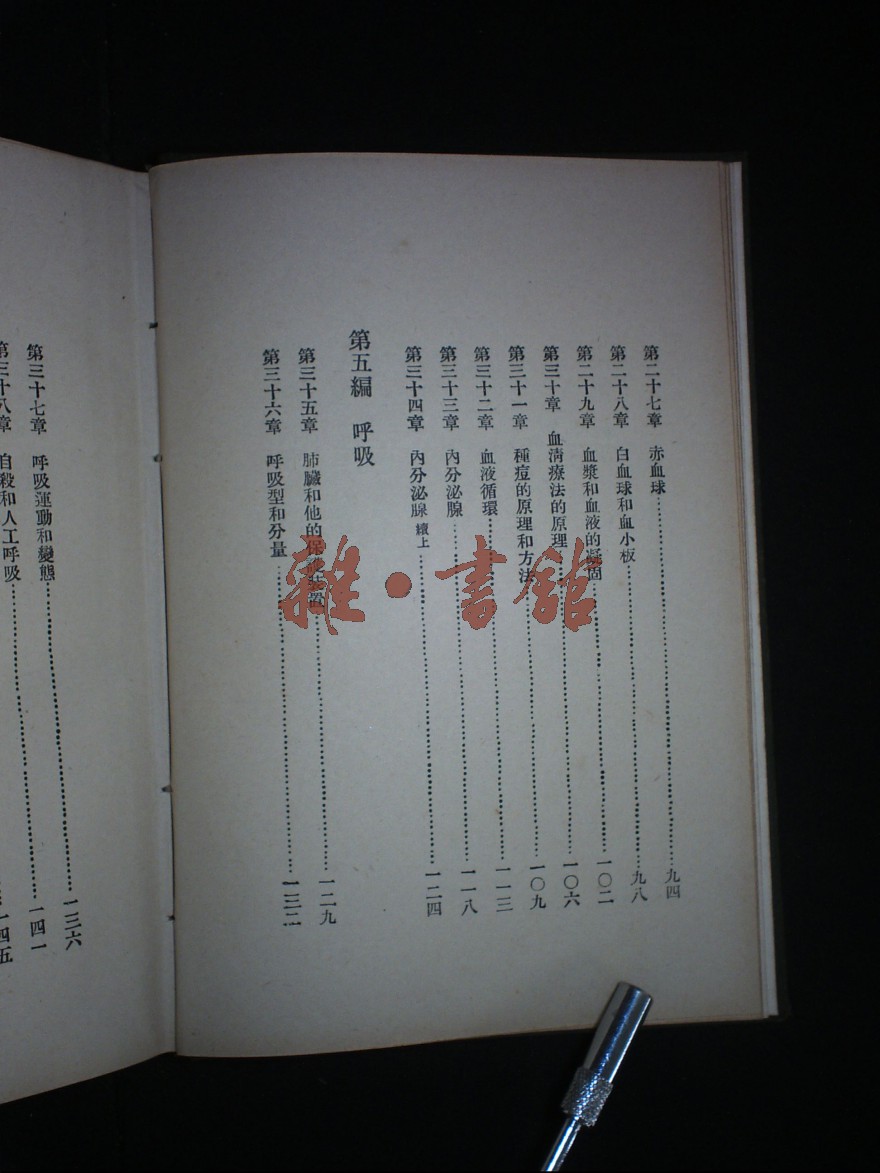 第二十七章　赤血球……九四
第二十八章　白血球和血小板……九八
第二十九章　血漿和血液的凝固……一〇二
第三十章　血清療法的原理……一〇六
第三十一章　種痘的原理和方法……一〇九
第三十二章　血液循環……一一三
第三十三章　內分泌腺……一一八
第三十四章　內分泌腺續上……一二四
第五編　呼吸
第三十五章　肺臟和他的保護裝置……一二九
第三十六章　呼吸型和分量……一三二
第三十七章　呼吸運動和變態……一三六
第三十八章　自殺和人工呼吸……一四一
一四五
雜·書館